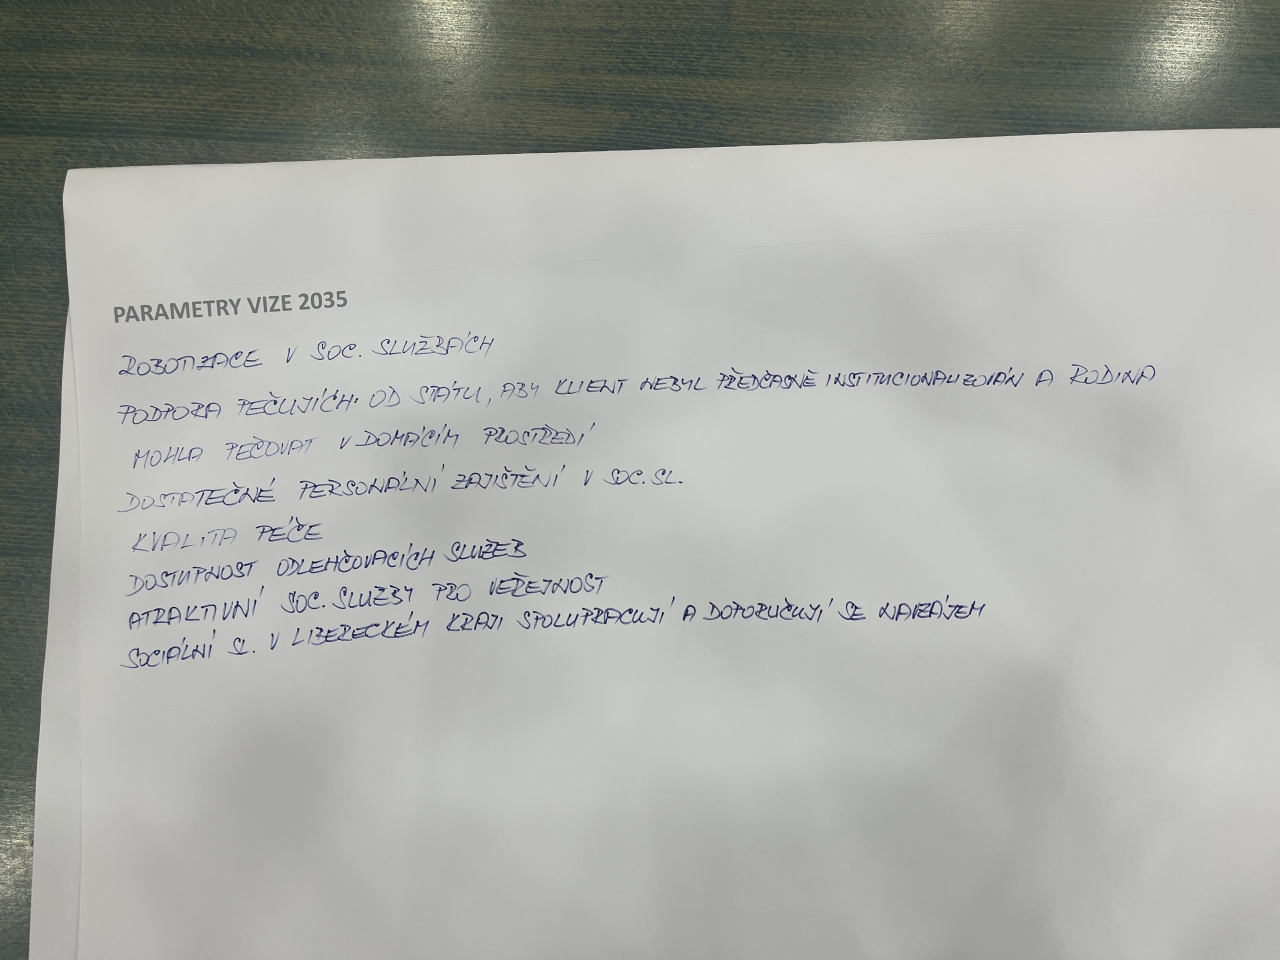 PARAMETRY VIZE 2035
ROBOTIZACE V SOC. SLUŽBÁCH
PODPORA PEČUJÍCÍCH OD STÁTU, ABY KLIENT NEBYL PŘEDČASNĚ INSTITUCIONALIZOVÁN A RODINA
MOHLA PEČOVAT V DOMÁCÍM PROSTŘEDÍ
DOSTATEČNÉ PERSONÁLNÍ ZAJIŠTĚNÍ V SOC. SL.
KVALITA PÉČE
DOSTUPNOST ODLEHČOVACÍCH SLUŽEB
ATRAKTIVNÍ SOC. SLUŽBY PRO VEŘEJNOST
SOCIÁLNÍ SL. V LIBERECKÉM KRAJI SPOLUPRACUJÍ A DOPORUČUJÍ SE NAVZÁJEM